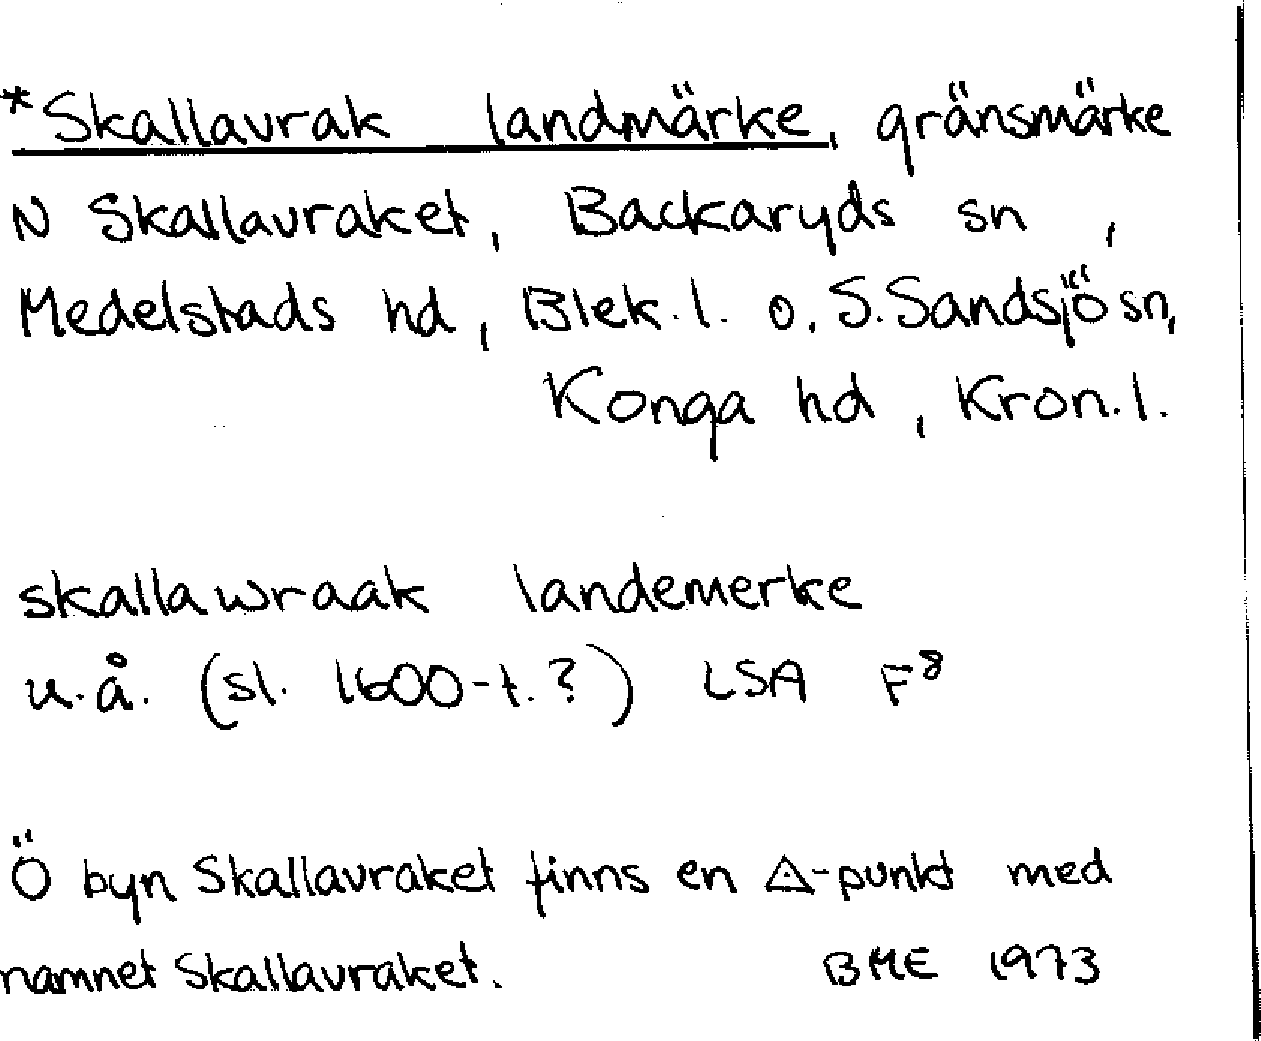 *Skallavrak landmärke, gränsmärke
N Skallavraket, Backaryds sn,
Medelstads hd, Blek.l. o. S. Sandsjö sn,
Konga hd, Kron.l.
skallawraak landemerke
u.å. (sl. 1600-t.?) LSA F⁸
Ö byn Skallavraket finns en △-punkt med
namnet Skallavraket. BME 1973